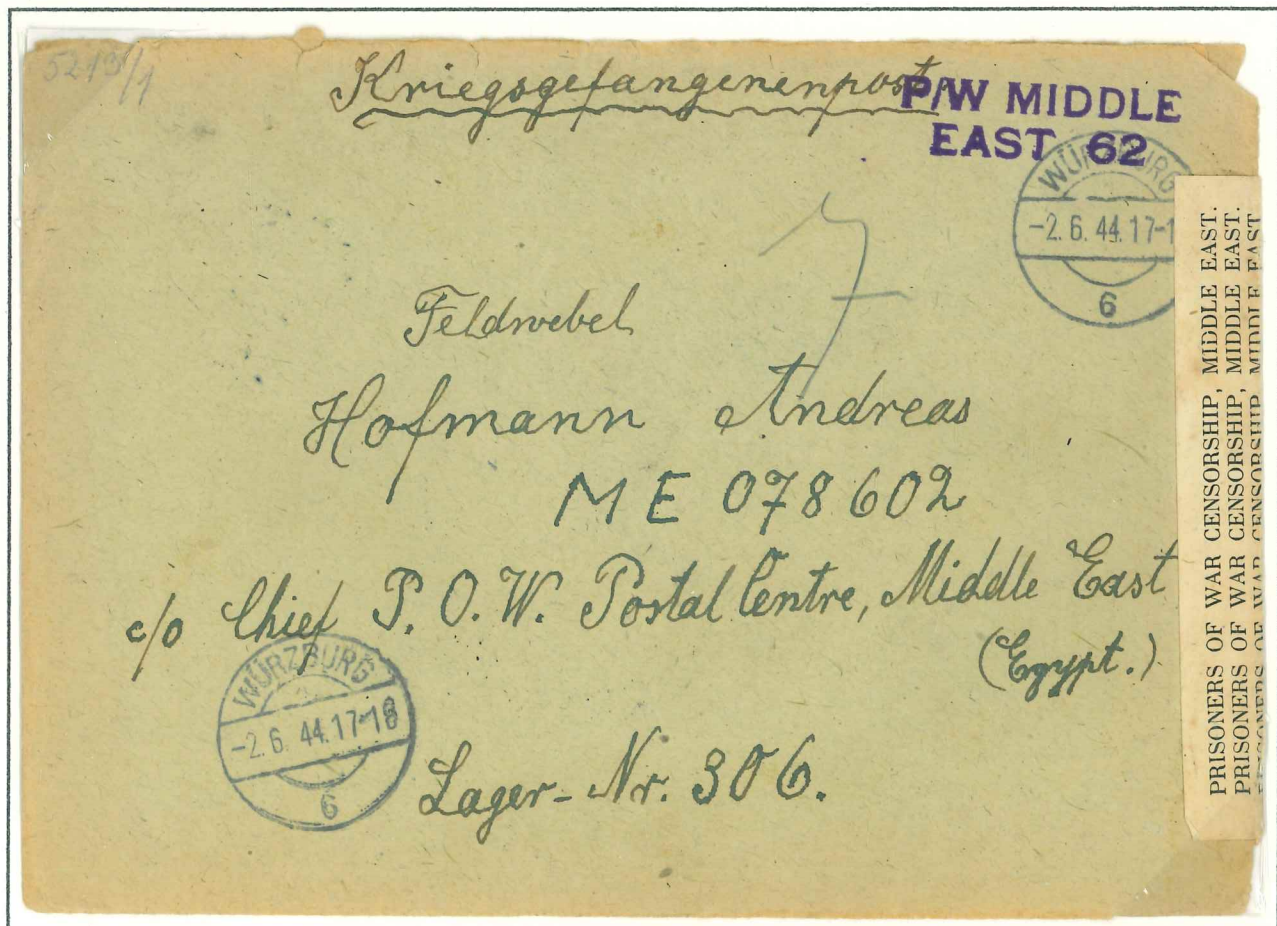 5213/1
Kriegsgefangenenpost
P/W MIDDLE
EAST 62
WÜRZBURG
-2.6.44.17-1
6
7
Feldwebel
Hofmann Andreas
M E 078602
c/o Chief P.O.W. Postal Centre, Middle East
(Egypt.)
Lager-Nr. 306.
WÜRZBURG
-2.6.44.17-18
6
PRISONERS OF WAR CENSORSHIP, MIDDLE EAST.
PRISONERS OF WAR CENSORSHIP, MIDDLE EAST.
PRISONERS OF WAR CENSORSHIP, MIDDLE EAST